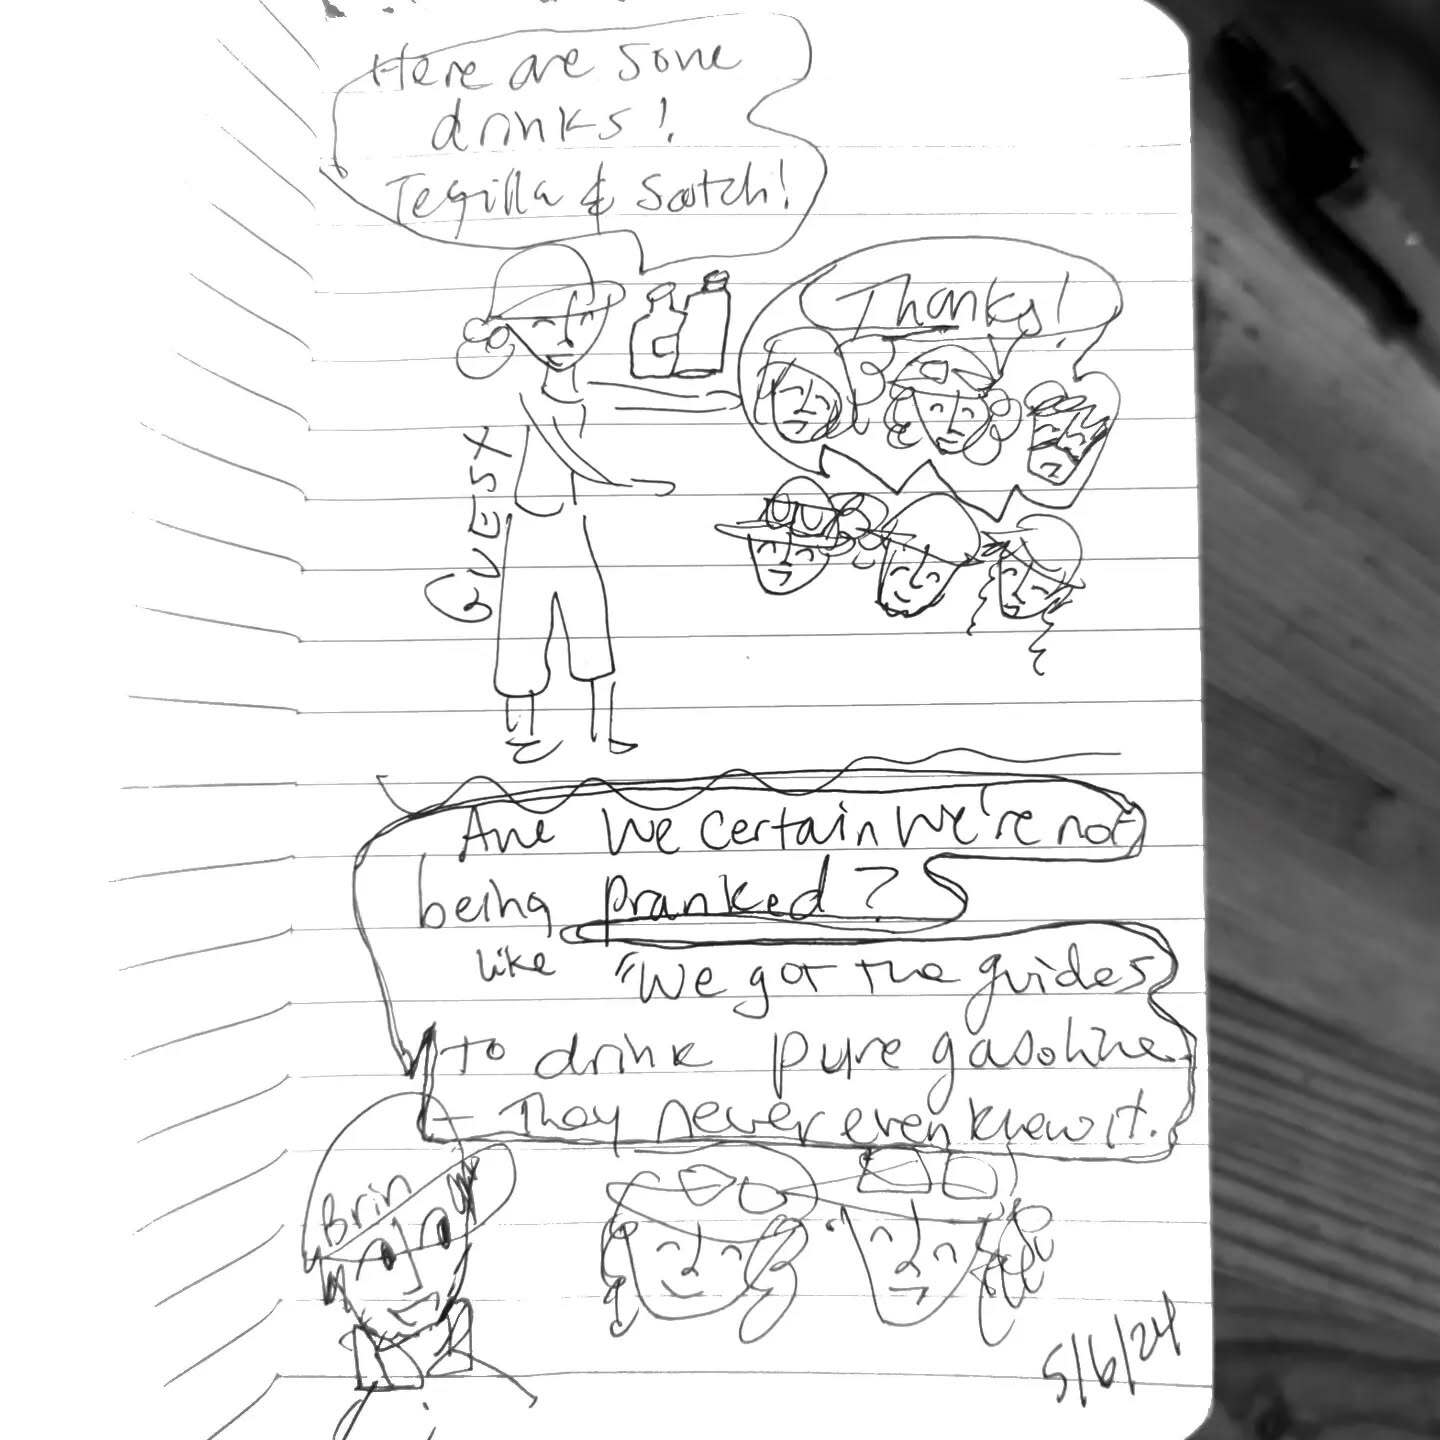 Here are some
drinks!
Teqilla & Scotch!
Thanks!
GUESX
Are We certain We're not
being pranked?
like "We got the guides
to drink pure gasoline
- They never even knew it.
Brin
5/6/24